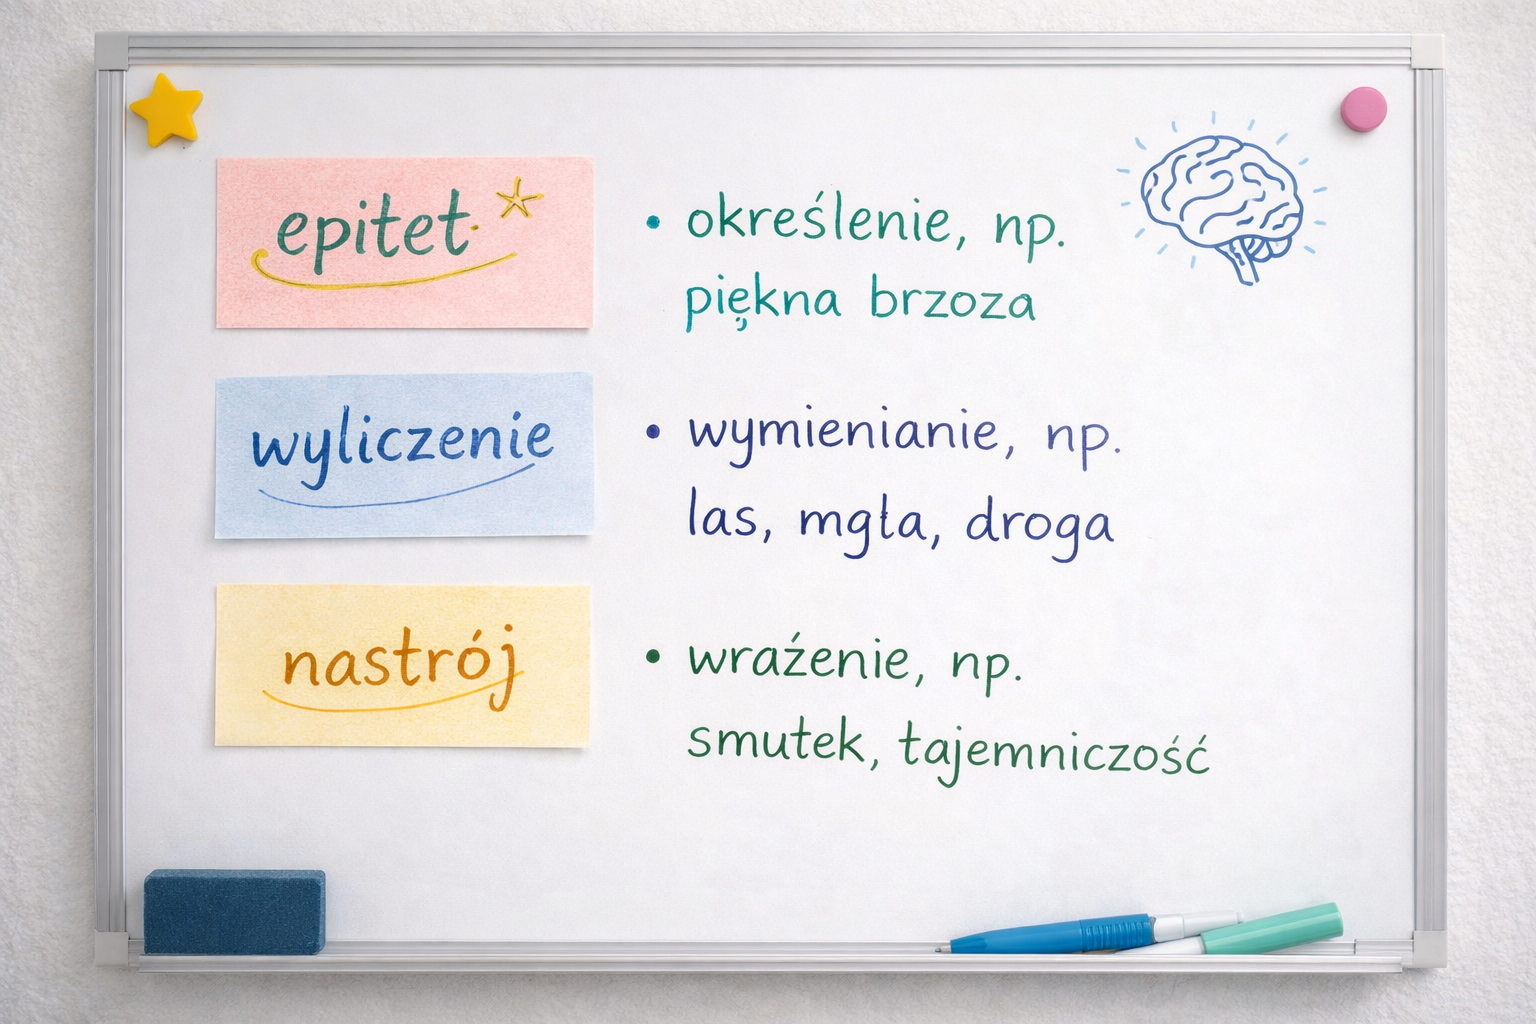 epitet
określenie, np.
piękna brzoza
wyliczenie
wymienianie, np.
las, mgła, droga
nastrój
wraźenie, np.
smutek, tajemniczość